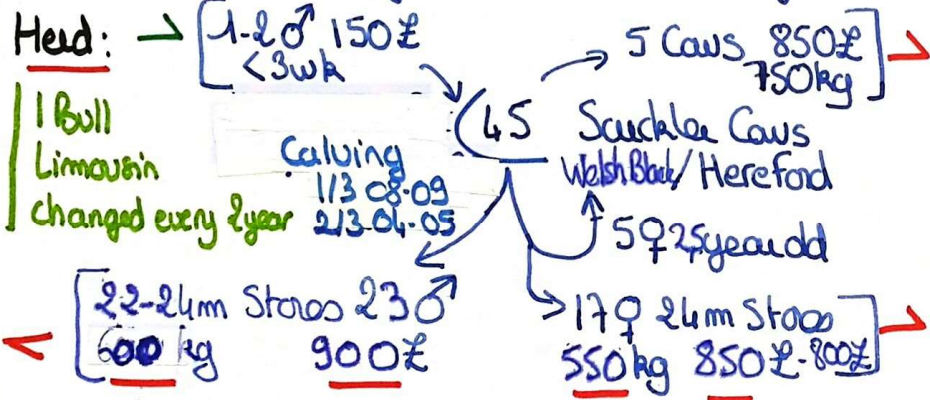 Herd: 1-2♂ 150£
<3wk
5 Cows 850£
750kg
1 Bull
Limousin
changed every 2year
Calving
1/3 08-09
2/3 04-05
45 Suckler Cows
Welsh Black/Hereford
5♀ 2,5year old
22-24m Stores 23♂
600 kg 900£
17♀ 24m Stores
550kg 850£-800£